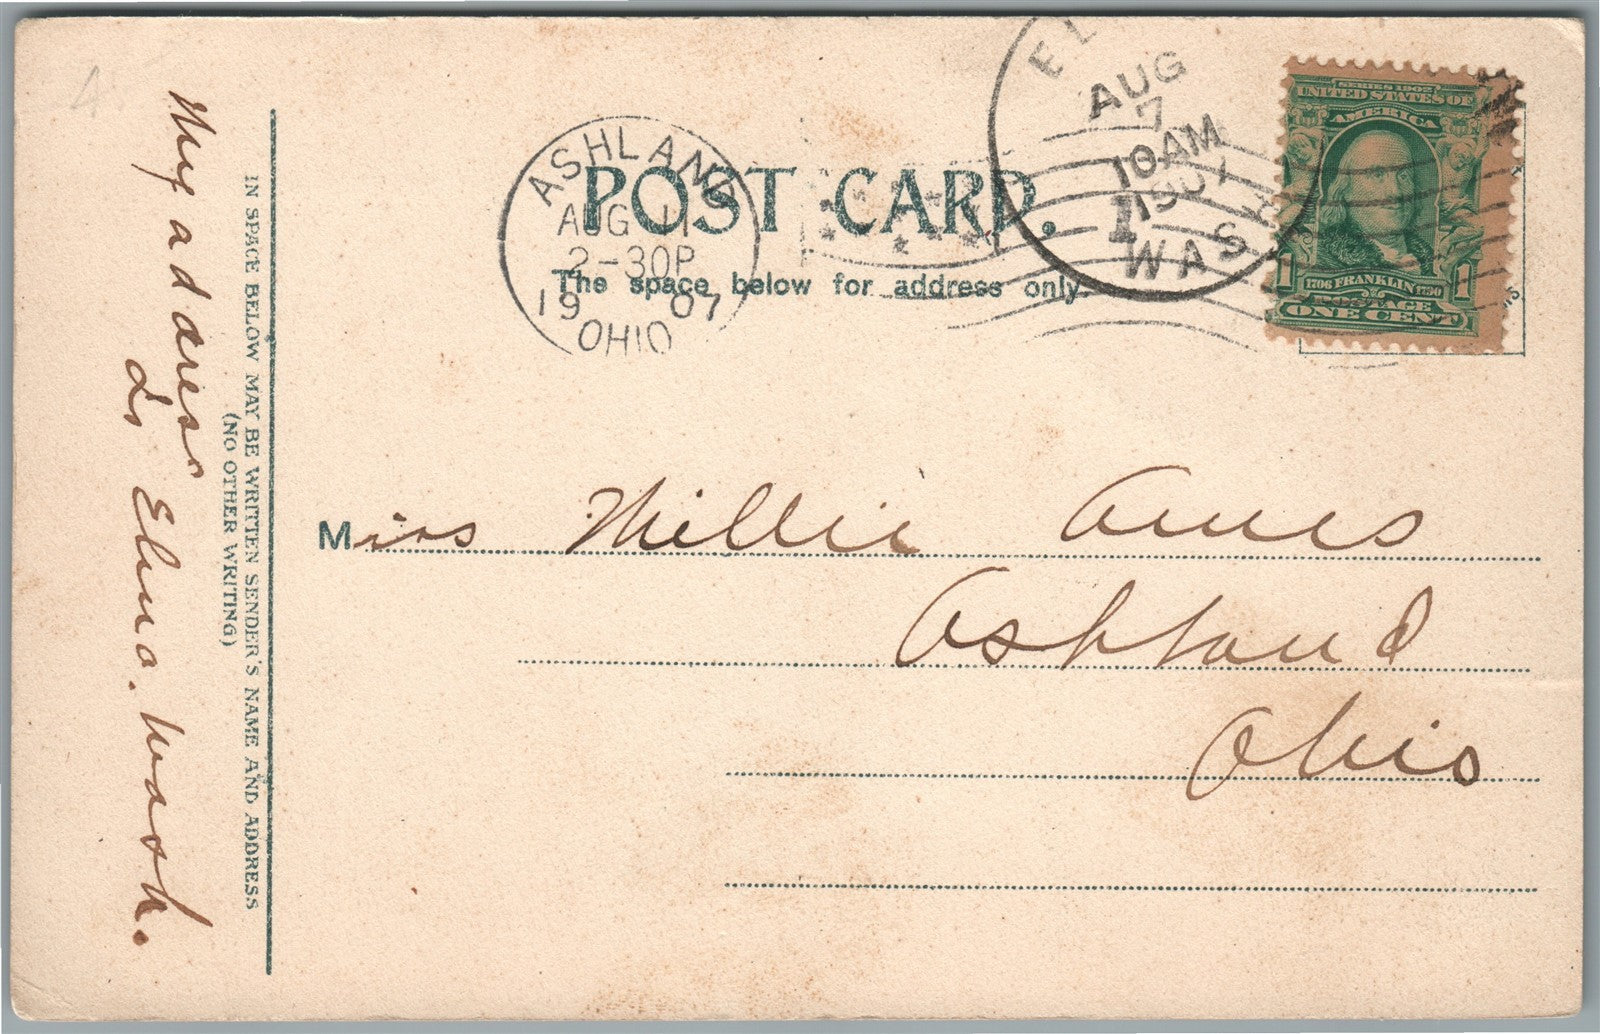 POST CARD.
The space below for address only.
ASHLAND
AUG 11
2-30P
1907
OHIO
EL
AUG
7
10AM
1907
WASH
SERIES 1902
UNITED STATES OF
AMERICA
1706 FRANKLIN 1790
POSTAGE
1 ONE CENT 1
Miss Millie Ames
Ashland
Ohio
IN SPACE BELOW MAY BE WRITTEN SENDER'S NAME AND ADDRESS
(NO OTHER WRITING)
My adaress
is Elma. Wash.
4